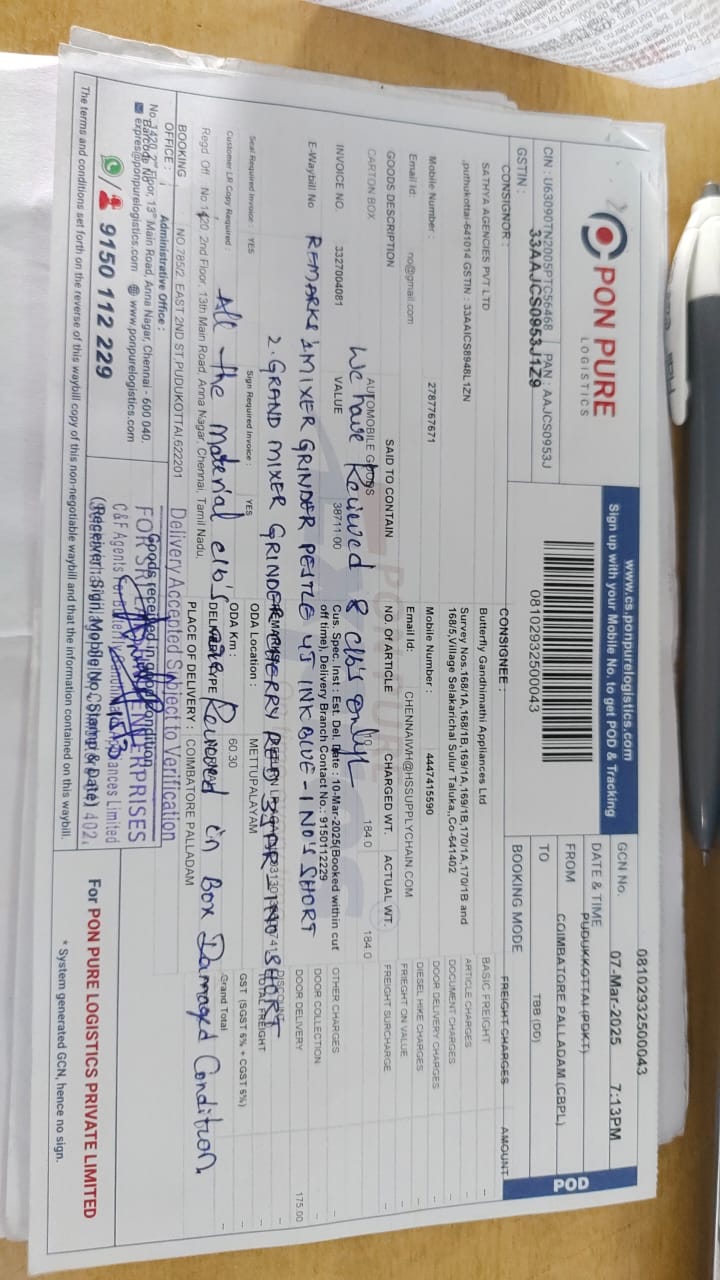 PON PURE
LOGISTICS
CIN : U63090TN2005PTC56468 PAN : AAJCS0953J
GSTIN : 33AAJCS0953J1Z9
www.cs.ponpurelogistics.com
Sign up with your Mobile No. to get POD & Tracking
08102932500043
08102932500043
GCN No.
DATE & TIME 07-Mar-2025 7:13PM
FROM PUDUKKOTTAI (PDKT)
TO COIMBATORE PALLADAM (CBPL)
BOOKING MODE TBB (DD)
POD
CONSIGNOR :
SATHYA AGENCIES PVT LTD
,puthukottai-641014 GSTIN : 33AAICS8948L1ZN
Mobile Number : 2787767671
Email Id: no@gmail.com
CONSIGNEE :
Butterfly Gandhimathi Appliances Ltd
Survey Nos.168/1A,168/1B,169/1A,169/1B,170/1A,170/1B and
168/5,Village Selakarichal Sulur Taluka,,Co-641402
Mobile Number : 4447415590
Email Id: CHENNAIWH@HSSUPPLYCHAIN.COM
FREIGHT CHARGES AMOUNT
BASIC FREIGHT --
ARTICLE CHARGES --
DOCUMENT CHARGES --
DOOR DELIVERY CHARGES --
DIESEL HIKE CHARGES --
FRIEGHT ON VALUE --
FREIGHT SURCHARGE --
OTHER CHARGES --
DOOR COLLECTION
DOOR DELIVERY 175.00
DISCOUNT --
TOTAL FREIGHT --
GST (SGST 6% + CGST 6%) --
Grand Total --
GOODS DESCRIPTION SAID TO CONTAIN NO. OF ARTICLE CHARGED WT. ACTUAL WT.
CARTON BOX AUTOMOBILE GOODS 184.0 184.0
We have Recieved 8 c/b's only
INVOICE NO. 3327004081 VALUE 38711.00
Cus. Spec. Inst : Est. Del. Date : 10-Mar-2025(Booked within cut
off time), Delivery Branch Contact No.: 9150112229
E-Waybill No
REMARKS 1. MIXER GRINDER PESTLE 4J INK BLUE - 1 NO'S SHORT
2. GRAND MIXER GRINDER CHERRY RED 3JAR - 1 NO SHORT
Seal Required Invoice : YES Sign Required Invoice : YES
ODA Location : METTUPALAYAM
Customer LR Copy Required :
ODA Km : 60.30
All the Material c/b's Received in Box Damaged Condition.
Regd Off : No 1420 2nd Floor, 13th Main Road, Anna Nagar, Chennai, Tamil Nadu.
BOOKING OFFICE : NO.785/2, EAST 2ND ST,PUDUKOTTAI,622201
PLACE OF DELIVERY : COIMBATORE PALLADAM
Delivery Accepted Subject to Verification
Administrative Office :
No. 1420, 2nd Floor, 13th Main Road, Anna Nagar, Chennai - 600 040.
expres@ponpurelogistics.com www.ponpurelogistics.com
9150 112 229
Goods received in good condition
ENTERPRISES
C&F Agents
(Receiver: Sign, Mobile No, Stamp & Date)
For PON PURE LOGISTICS PRIVATE LIMITED
* System generated GCN, hence no sign.
The terms and conditions set forth on the reverse of this waybill copy of this non-negotiable waybill and that the information contained on this waybill.